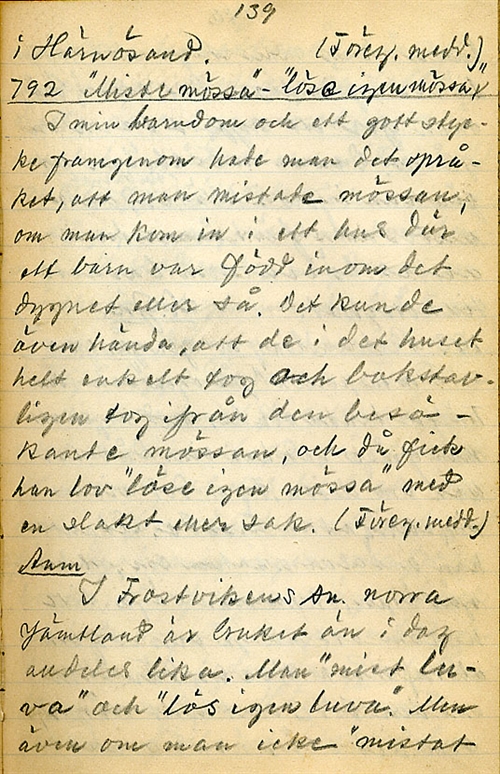 139
i Härnösand. (Föreg. medd.)
792 "Miste mössa" - "lösa igen mössa"
I min barndom och ett gott styc-
ke framgenom hade man det språ-
ket, att man mistade mössan,
om man kom in i ett hus där
ett barn var född inom det
dygnet eller så. Det kunde
även hända, att de i det huset
helt enkelt tog och bokstav-
ligen tog ifrån den besö-
kande mössan, och då fick
han lov "löse igen mössa" med
en slakt eller sak. (Föreg. medd.)
Anm
I Frostvikens sn. norra
Jämtland är bruket än i dag
andeles lika. Man "mist lu-
va" och "lös igen luva". Men
även om man icke "mistat